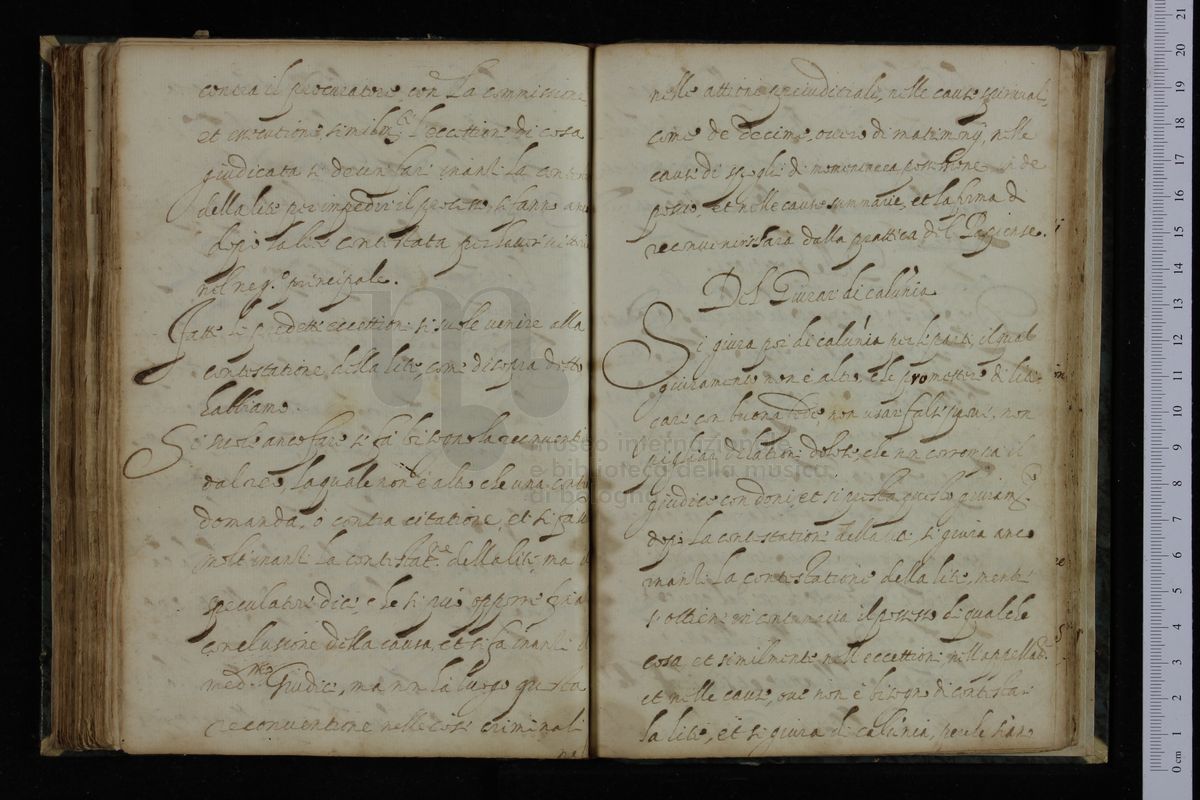 contra il procuratore con la commissione
et essecutione simil.te l'eccettion di cosa
giudicata si devon far inanti la
della lite per impedir il processo, si fanno anco
dopo la lite contestata per haver
nel neg.o principale.
Fatte le predette eccettioni si suole venire alla
contestatione della lite, come di sopra detto
habbiamo.
Si suole anco fare se fa bisogno la reconventi
dal reo, la quale non è altro che una contra
domanda, ò contra citatione, et si fa
molt inanti la contestat.ne della lite, ma
speculator dice, che si può opporre fin a
conclusione della causa, et si fa inanti
med.mo Giudice, ma non ha luogo questa
reconventione nelle cose criminali
nelle attioni preiudiciali, nelle cause spirituali,
come de decime, overo di matrimonij, nelle
cause di spogli di momentanea possessione in de
posito, et nelle cause summarie, et la forma d
reconvenir sarà dalla prattica del Papiense.
Del Giurar di calunia
Si giura poi di calunia per le parti, il qual
giuramento non è altro che promettere di liti-
care con buona fede, non usar false prove, non
pigliar dilationi dolose, che non corromca il
giudice con doni, et si presta questo giuram.to
dopò la contestation della lite si giura anco
inanti la contestatione della lite, mentre
s'ottien in contumacia il possesso di qualche
cosa et similmente nell'eccettioni nell'appellat.ne
et nelle cause, ove non è bisogno di contestar
la lite, et si giura di calunia, perche siano
museo internazionale
e biblioteca della musica
di bologna
0 cm 1 2 3 4 5 6 7 8 9 10 11 12 13 14 15 16 17 18 19 20 21